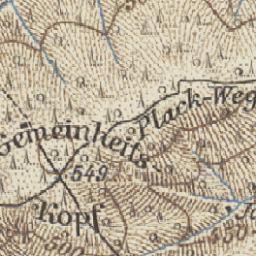 Plack-Weg
Gemeinheits-
549
Kopf
500